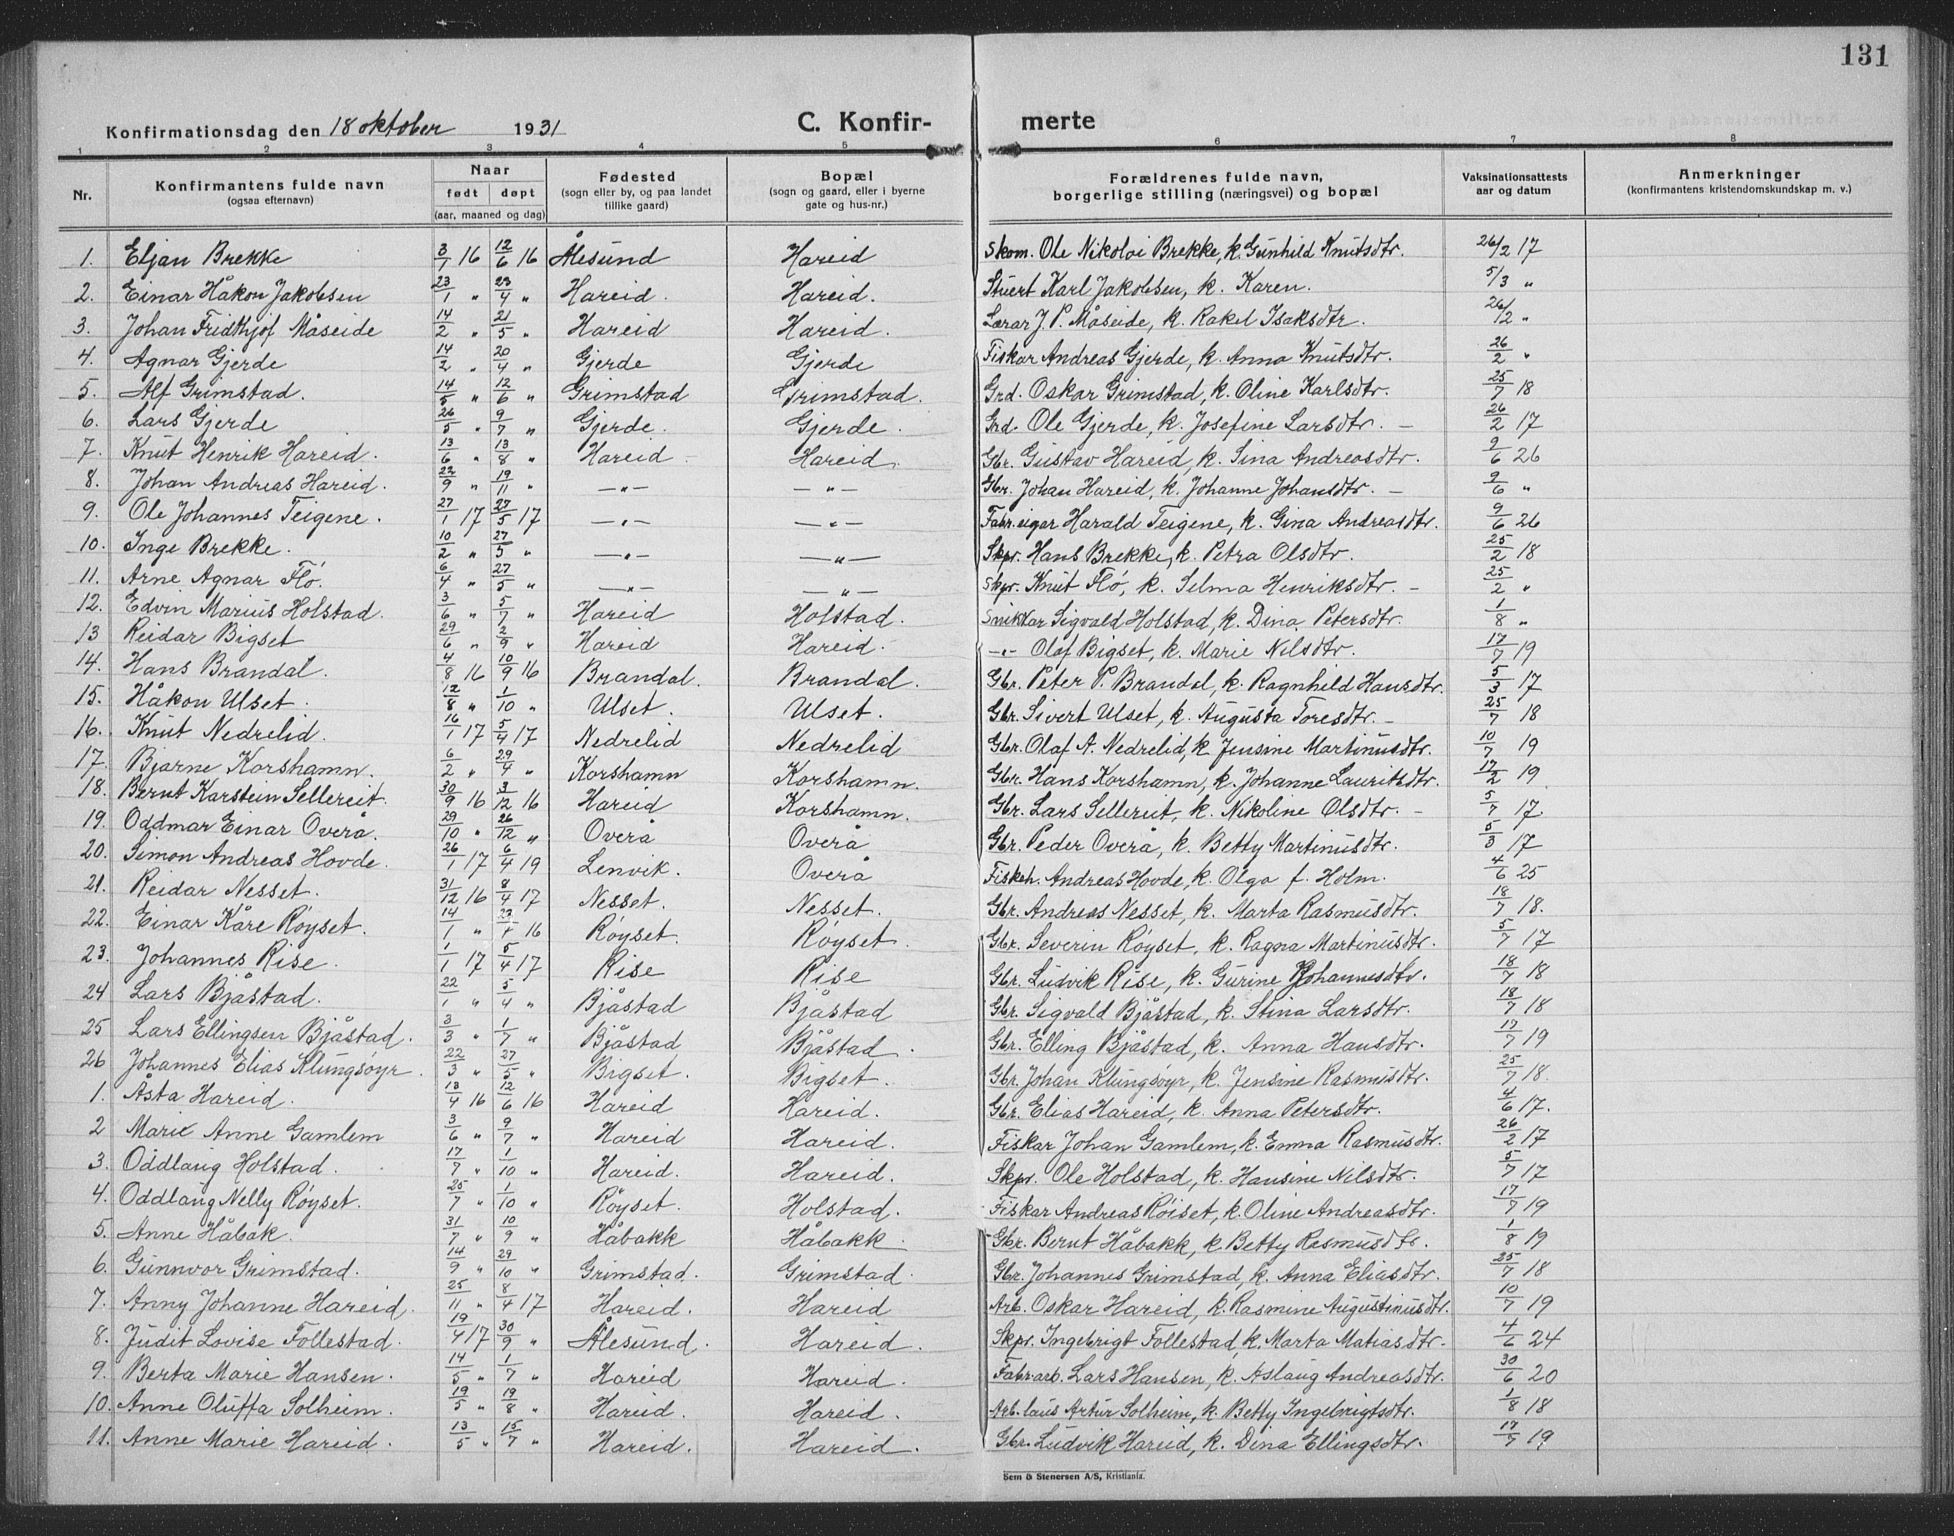 131
Konfirmationsdag den 18 oktober 1931 C. Konfir- merte
1 2 3 4 5 6 7 8
Nr. Konfirmantens fulde navn (ogsaa efternavn) Naar født døpt (aar, maaned og dag) Fødested (sogn eller by, og paa landet tillike gaard) Bopæl (sogn og gaard, eller i byerne gate og hus-nr.) Forældrenes fulde navn, borgerlige stilling (næringsvei) og bopæl Vaksinationsattests aar og datum Anmerkninger (konfirmantens kristendomskundskap m. v.)
1. Eljan Brekke 3/1 16 12/6 16 Ålesund Hareid Skom. Ole Nikolai Brekke, k. Gunhild Knutsdtr. 26/2 17
2. Einar Håkon Jakobsen 23/1 " 23/4 " Hareid. Hareid. Stuert Karl Jakobsen, k. Karen. 5/3 "
3. Johan Fridthjof Måseide 14/2 " 21/5 " Hareid Hareid. Lærar J. P. Måseide, k. Rakel Isaksdtr. 26/2 "
4. Agnar Gjerde 14/2 " 20/4 " Gjerde Gjerde Fiskar Andreas Gjerde, k. Anna Knutsdtr. 26/2 "
5. Alf Grimstad. 14/5 " 12/6 " Grimstad Grimstad. Grd. Oskar Grimstad, k. Oline Karlsdtr. 25/7 18
6. Lars Gjerde 26/5 " 9/7 " Gjerde. Gjerde. Grd. Ole Gjerde, k. Josefine Larsdtr. – 26/2 17
7. Knut Henrik Hareid. 13/6 " 13/8 " Hareid Hareid. Gbr. Gustav Hareid, k. Sina Andreasdtr. 9/6 26
8. Johan Andreas Hareid. 22/9 " 19/11 " —"— —"— Gbr. Johan Hareid, k. Johanne Johansdtr. – 9/6 "
9. Ole Johannes Teigene. 27/1 17 27/5 17 —"— —"— Fabr. eigar Harald Teigene, k. Gina Andreasdtr. 9/6 26
10. Inge Brekke. 10/2 " 27/5 " —"— —"— Skpr. Hans Brekke, k. Petra Olsdtr. 25/2 18
11. Arne Agnar Flø. 6/4 " 27/5 " —"— —"— Skpr. Knut Flø, k. Selma Henriksdtr. – 25/2 "
12. Edvin Marius Holstad. 3/6 " 5/7 " Hareid Holstad. Snikkar Sigvald Holstad, k. Dina Petersdtr. 1/8 "
13 Reidar Bigset 29/6 " 2/9 " Hareid Hareid. –"– Olaf Bigset, k. Marie Nilsdtr. 17/7 19
14. Hans Brandal. 4/8 16 10/9 16 Brandal. Brandal. Gbr. Peter P. Brandal, k. Ragnhild Hansdtr. 5/3 17
15. Håkon Ulset. 12/8 " 1/10 " Ulset. Ulset. Gbr. Sivert Ulset, k. Augusta Toresdtr. – 25/7 18
16. Knut Nedrelid. 16/1 17 5/4 17 Nedrelid Nedrelid Gbr. Olaf A. Nedrelid, k. Jensine Martinusdtr. 10/7 19
17. Bjarne Korshamn. 6/2 " 29/4 " Korshamn Korshamn. Gbr. Hans Korshamn, k. Johanne Lauritsdtr. 17/2 19
18. Bernt Karstein Sellereit. 30/9 16 3/12 16 Hareid Korshamn. Gbr. Lars Sellereit, k. Nikoline Olsdtr. – 5/7 17
19. Oddmar Einar Overå. 29/10 " 26/12 " Overå Overå Gbr. Peder Overå, k. Betty Martinusdtr. 5/3 17
20. Simon Andreas Hovde. 26/1 17 6/4 19 Lenvik. Overå Fiskeh. Andreas Hovde, k. Olga f. Holm. 4/6 25
21. Reidar Nesset. 31/12 16 8/4 17 Nesset. Nesset. Gbr. Andreas Nesset, k. Marta Rasmusdtr. 18/7 18.
22. Einar Kåre Røyset. 14/1 " 16 Røyset. Røyset. Gbr. Severin Røyset, k. Ragna Martinusdtr. 5/7 17
23. Johannes Rise. 1/1 17 5/4 17 Rise Rise Gbr. Ludvik Rise, k. Gurine Johannesdtr. 18/7 18
24 Lars Bjåstad. 22/1 " 5/4 " Bjåstad Bjåstad Gbr. Sigvald Bjåstad, k. Stina Larsdtr. 18/7 18
25 Lars Ellingsen Bjåstad. 3/3 " 1/7 " Bjåstad Bjåstad. Gbr. Elling Bjåstad, k. Anna Hansdtr. 17/7 19
26 Johannes Elias Klungsøyr. 22/3 " 27/5 " Bigset. Bigset. Gbr. Johan Klungsøyr, k. Jensine Rasmusdtr. 25/7 18.
1. Åsta Hareid. 13/4 16 12/6 16 Hareid Hareid. Gbr. Elias Hareid, k. Anna Petersdtr. 4/6 17.
2 Marie Anne Gamlem 3/6 " 9/7 " Hareid Hareid. Fiskar Johan Gamlem, k. Emma Rasmusdtr. 26/2 17
3. Oddlaug Holstad. 17/7 " 1/10 " Hareid. Hareid. Skpr. Ole Holstad, k. Hansine Nilsdtr. 5/7 17
4. Oddlaug Nelly Røyset. 25/7 " 1/10 " Røyset. Holstad. Fiskar Andreas Røiset, k. Oline Andreasdtr. 17/7 19
5. Anne Håbak. 31/7 " 10/9 " Håbakk Håbakk. Gbr. Bernt Håbakk, k. Betty Rasmusdtr. 1/8 19
6. Gunnvor Grimstad. 14/9 " 29/10 " Grimstad. Grimstad. Gbr. Johannes Grimstad, k. Anna Eliasdtr. 25/7 18
7. Anny Johanne Hareid. 25/11 " 8/4 17 Hareid. Hareid Arb. Oskar Hareid, k. Rasmine Augustinusdtr. 10/7 19
8. Judit Lovise Follestad. 19/4 17 30/9 " Ålesund. Hareid. Skpr. Ingebrigt Follestad, k. Marta Matiasdtr. 4/6 24
9. Berta Marie Hansen. 14/5 " 1/7 " Hareid Hareid. Fabr. arb. Lars Hansen, k. Aslaug Andreasdtr. 30/6 20
10. Anne Oluffa Solheim. 19/5 " 19/8 " Hareid. Hareid. Arb. laus Artur Solheim, k. Betty Ingebrigtsdtr. 1/8 18
11. Anne Marie Hareid. 13/5 " 15/7 " Hareid. Hareid. Gbr. Ludvik Hareid, k. Dina Ellingsdtr. 17/7 19
Sem & Stenersen A/S, Kristiania.